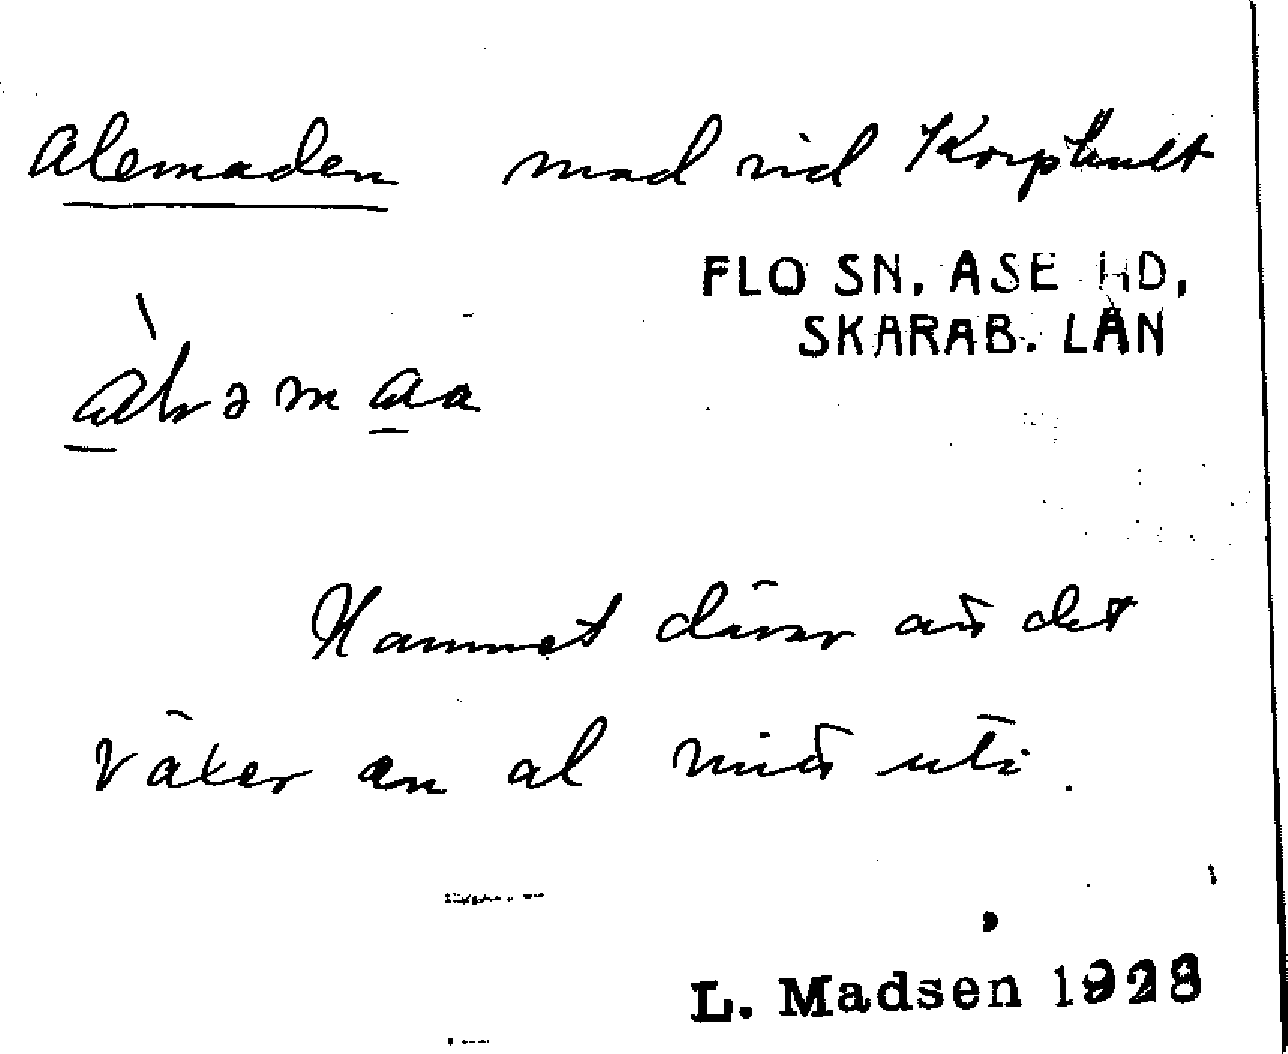 Alemaden mad vid Korphult
FLO SN, ÅSE HD,
SKARAB. LÄN
Namnet därav att det
växer en al mitt uti.
L. Madsen 1928